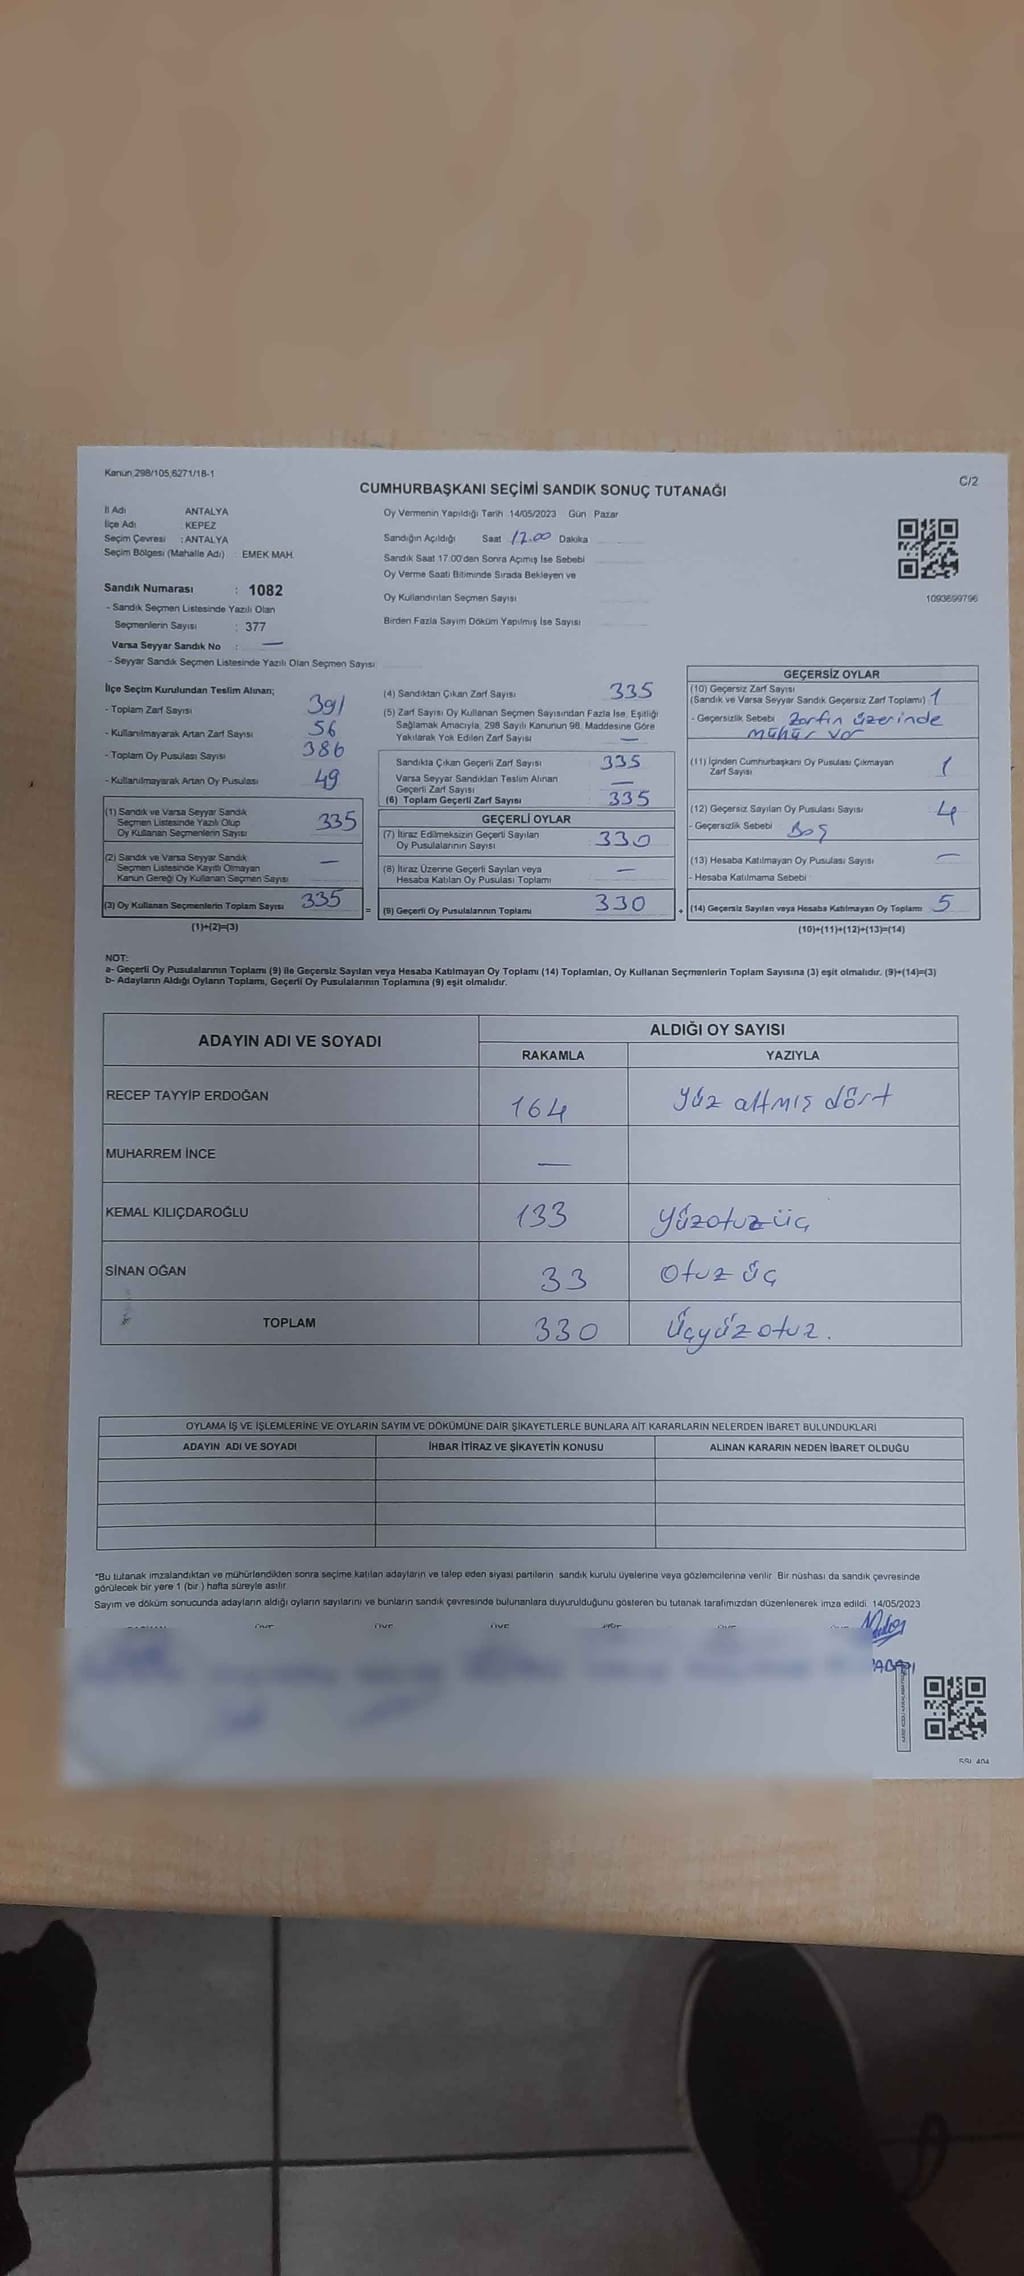 Kanun 298/105,6271/18-1
C/2
CUMHURBAŞKANI SEÇİMİ SANDIK SONUÇ TUTANAĞI
İl Adı ANTALYA
İlçe Adı KEPEZ
Seçim Çevresi : ANTALYA
Seçim Bölgesi (Mahalle Adı) : EMEK MAH.
Sandık Numarası : 1082
- Sandık Seçmen Listesinde Yazılı Olan
Seçmenlerin Sayısı : 377
Varsa Seyyar Sandık No : —
- Seyyar Sandık Seçmen Listesinde Yazılı Olan Seçmen Sayısı
Oy Vermenin Yapıldığı Tarih 14/05/2023 Gün Pazar
Sandığın Açıldığı Saat 17.00 Dakika
Sandık Saat 17:00'den Sonra Açımış İse Sebebi
Oy Verme Saati Bitiminde Sırada Bekleyen ve
Oy Kullandırılan Seçmen Sayısı
Birden Fazla Sayım Döküm Yapılmış İse Sayısı
1093699796
İlçe Seçim Kurulundan Teslim Alınan;
- Toplam Zarf Sayısı 391
- Kullanılmayarak Artan Zarf Sayısı 56
- Toplam Oy Pusulası Sayısı 386
- Kullanılmayarak Artan Oy Pusulası 49
(1) Sandık ve Varsa Seyyar Sandık
Seçmen Listesinde Yazılı Olup
Oy Kullanan Seçmenlerin Sayısı 335
(2) Sandık ve Varsa Seyyar Sandık
Seçmen Listesinde Kayıtlı Olmayan
Kanun Gereği Oy Kullanan Seçmen Sayısı —
(3) Oy Kullanan Seçmenlerin Toplam Sayısı 335
(1)+(2)=(3)
(4) Sandıktan Çıkan Zarf Sayısı 335
(5) Zarf Sayısı Oy Kullanan Seçmen Sayısından Fazla İse, Eşitliği
Sağlamak Amacıyla, 298 Sayılı Kanunun 98. Maddesine Göre
Yakılarak Yok Edilen Zarf Sayısı —
Sandıkla Çıkan Geçerli Zarf Sayısı 335
Varsa Seyyar Sandıkları Teslim Alınan
Geçerli Zarf Sayısı —
(6) Toplam Geçerli Zarf Sayısı 335
GEÇERLİ OYLAR
(7) İtiraz Edilmeksizin Geçerli Sayılan
Oy Pusulalarının Sayısı 330
(8) İtiraz Üzerine Geçerli Sayılan veya
Hesaba Katılan Oy Pusulası Toplamı —
= (9) Geçerli Oy Pusulalarının Toplamı 330
GEÇERSİZ OYLAR
(10) Geçersiz Zarf Sayısı
(Sandık ve Varsa Seyyar Sandık Geçersiz Zarf Toplamı) 1
- Geçersizlik Sebebi Zarfın üzerinde
mühür var
(11) İçinden Cumhurbaşkanı Oy Pusulası Çıkmayan
Zarf Sayısı 1
(12) Geçersiz Sayılan Oy Pusulası Sayısı 4
- Geçersizlik Sebebi Boş
(13) Hesaba Katılmayan Oy Pusulası Sayısı —
- Hesaba Katılmama Sebebi
+ (14) Geçersiz Sayılan veya Hesaba Katılmayan Oy Toplamı 5
(10)+(11)+(12)+(13)=(14)
NOT:
a- Geçerli Oy Pusulalarının Toplamı (9) ile Geçersiz Sayılan veya Hesaba Katılmayan Oy Toplamı (14) Toplamları, Oy Kullanan Seçmenlerin Toplam Sayısına (3) eşit olmalıdır. (9)+(14)=(3)
b- Adayların Aldığı Oyların Toplamı, Geçerli Oy Pusulalarının Toplamına (9) eşit olmalıdır.
ADAYIN ADI VE SOYADI ALDIĞI OY SAYISI
RAKAMLA YAZIYLA
RECEP TAYYİP ERDOĞAN 164 Yüz altmış dört
MUHARREM İNCE —
KEMAL KILIÇDAROĞLU 133 Yüzotuzüç
SİNAN OĞAN 33 Otuz üç
TOPLAM 330 Üçyüz otuz.
OYLAMA İŞ VE İŞLEMLERİNE VE OYLARIN SAYIM VE DÖKÜMÜNE DAİR ŞİKAYETLERLE BUNLARA AİT KARARLARIN NELERDEN İBARET BULUNDUKLARI
ADAYIN ADI VE SOYADI İHBAR İTİRAZ VE ŞİKAYETİN KONUSU ALINAN KARARIN NEDEN İBARET OLDUĞU
"Bu tutanak imzalandıktan ve mühürlendikten sonra seçime katılan adayların ve talep eden siyasi partilerin sandık kurulu üyelerine veya gözlemcilerine verilir. Bir nüshası da sandık çevresinde
görülecek bir yere 1 (bir ) hafta süreyle asılır.
Sayım ve döküm sonucunda adayların aldığı oyların sayılarını ve bunların sandık çevresinde bulunanlara duyurulduğunu gösteren bu tutanak tarafımızdan düzenlenerek imza edildi. 14/05/2023